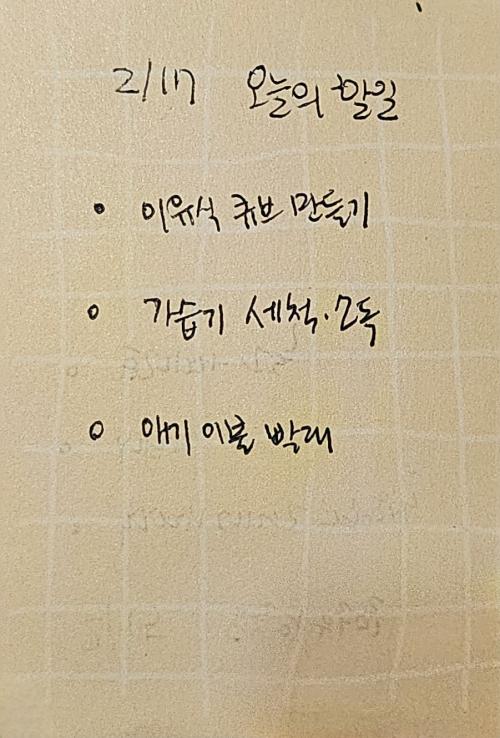 2/17 오늘의 할일
• 이유식 큐브 만들기
• 가습기 세척·소독
• 애기 이불 빨래